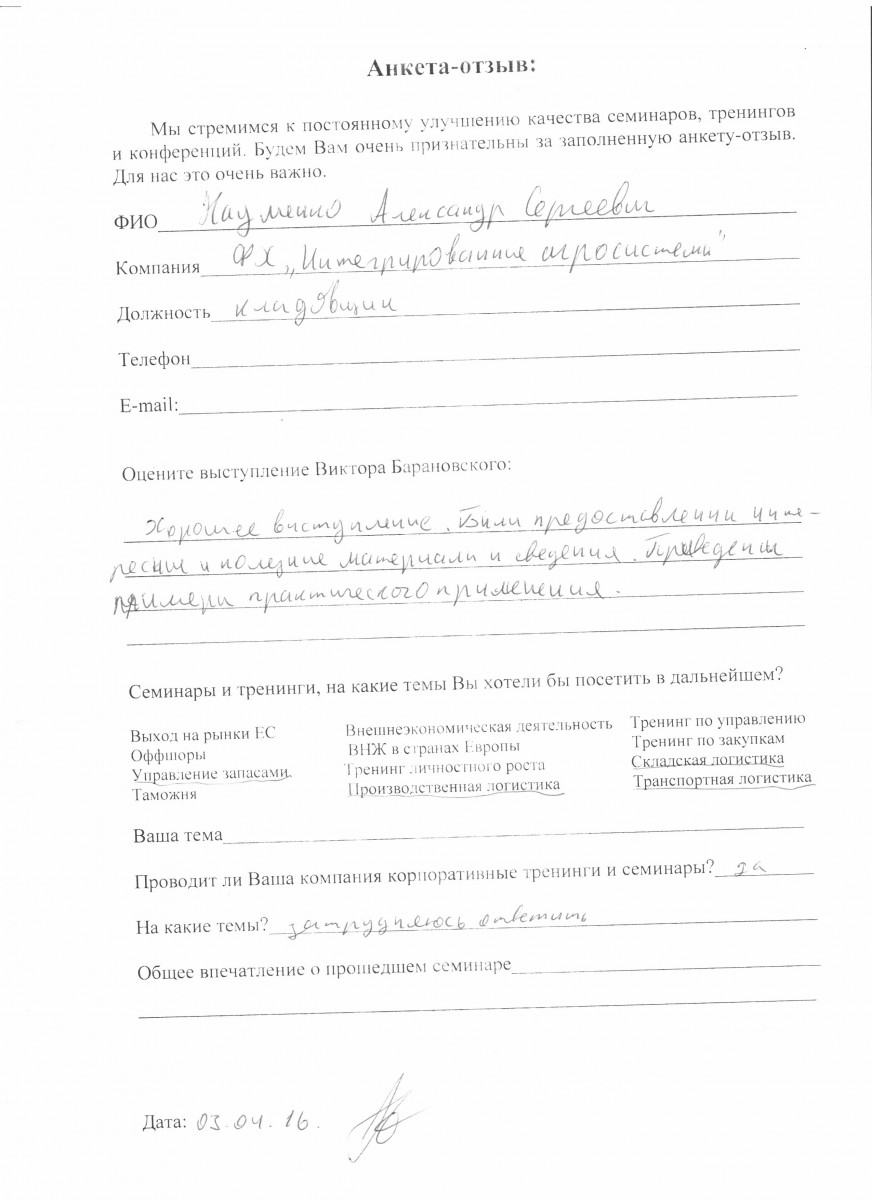 Анкета-отзыв:
Мы стремимся к постоянному улучшению качества семинаров, тренингов
и конференций. Будем Вам очень признательны за заполненную анкету-отзыв.
Для нас это очень важно.
ФИО Науменко Александр Сергеевич
Компания ФХ „Интегрированние агросистеми"
Должность кладовщик
Телефон
E-mail:
Оцените выступление Виктора Барановского:
Хорошее виступление. Били предоставленни инте-
ресние и полезние материали и сведения. Приведени
примери практического применения.
Семинары и тренинги, на какие темы Вы хотели бы посетить в дальнейшем?
Выход на рынки ЕС Внешнеэкономическая деятельность Тренинг по управлению
Оффшоры ВНЖ в странах Европы Тренинг по закупкам
Управление запасами Тренинг личностного роста Складская логистика
Таможня Производственная логистика Транспортная логистика
Ваша тема
Проводит ли Ваша компания корпоративные тренинги и семинары? да
На какие темы? затрудняюсь ответить
Общее впечатление о прошедшем семинаре
Дата: 03.04.16.